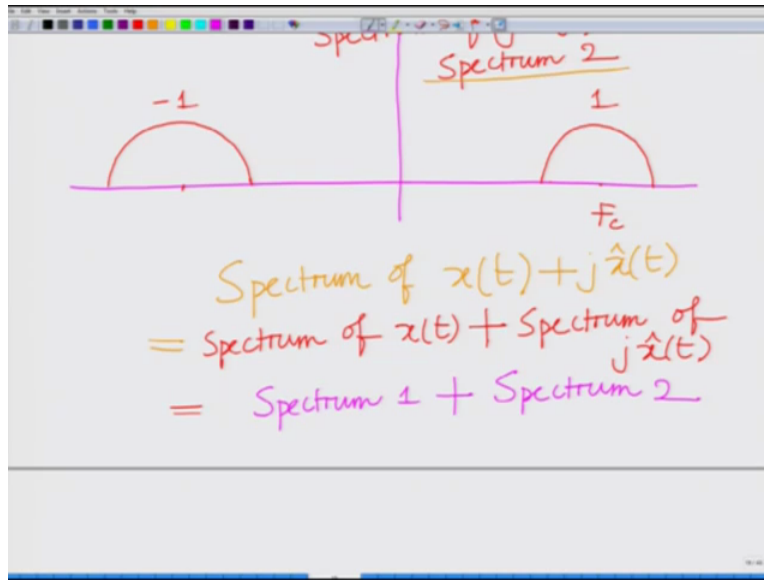 Spectrum 2
-1
1
Fc
Spectrum of x(t)+jx̂(t)
= Spectrum of x(t) + Spectrum of
jx̂(t)
= Spectrum 1 + Spectrum 2